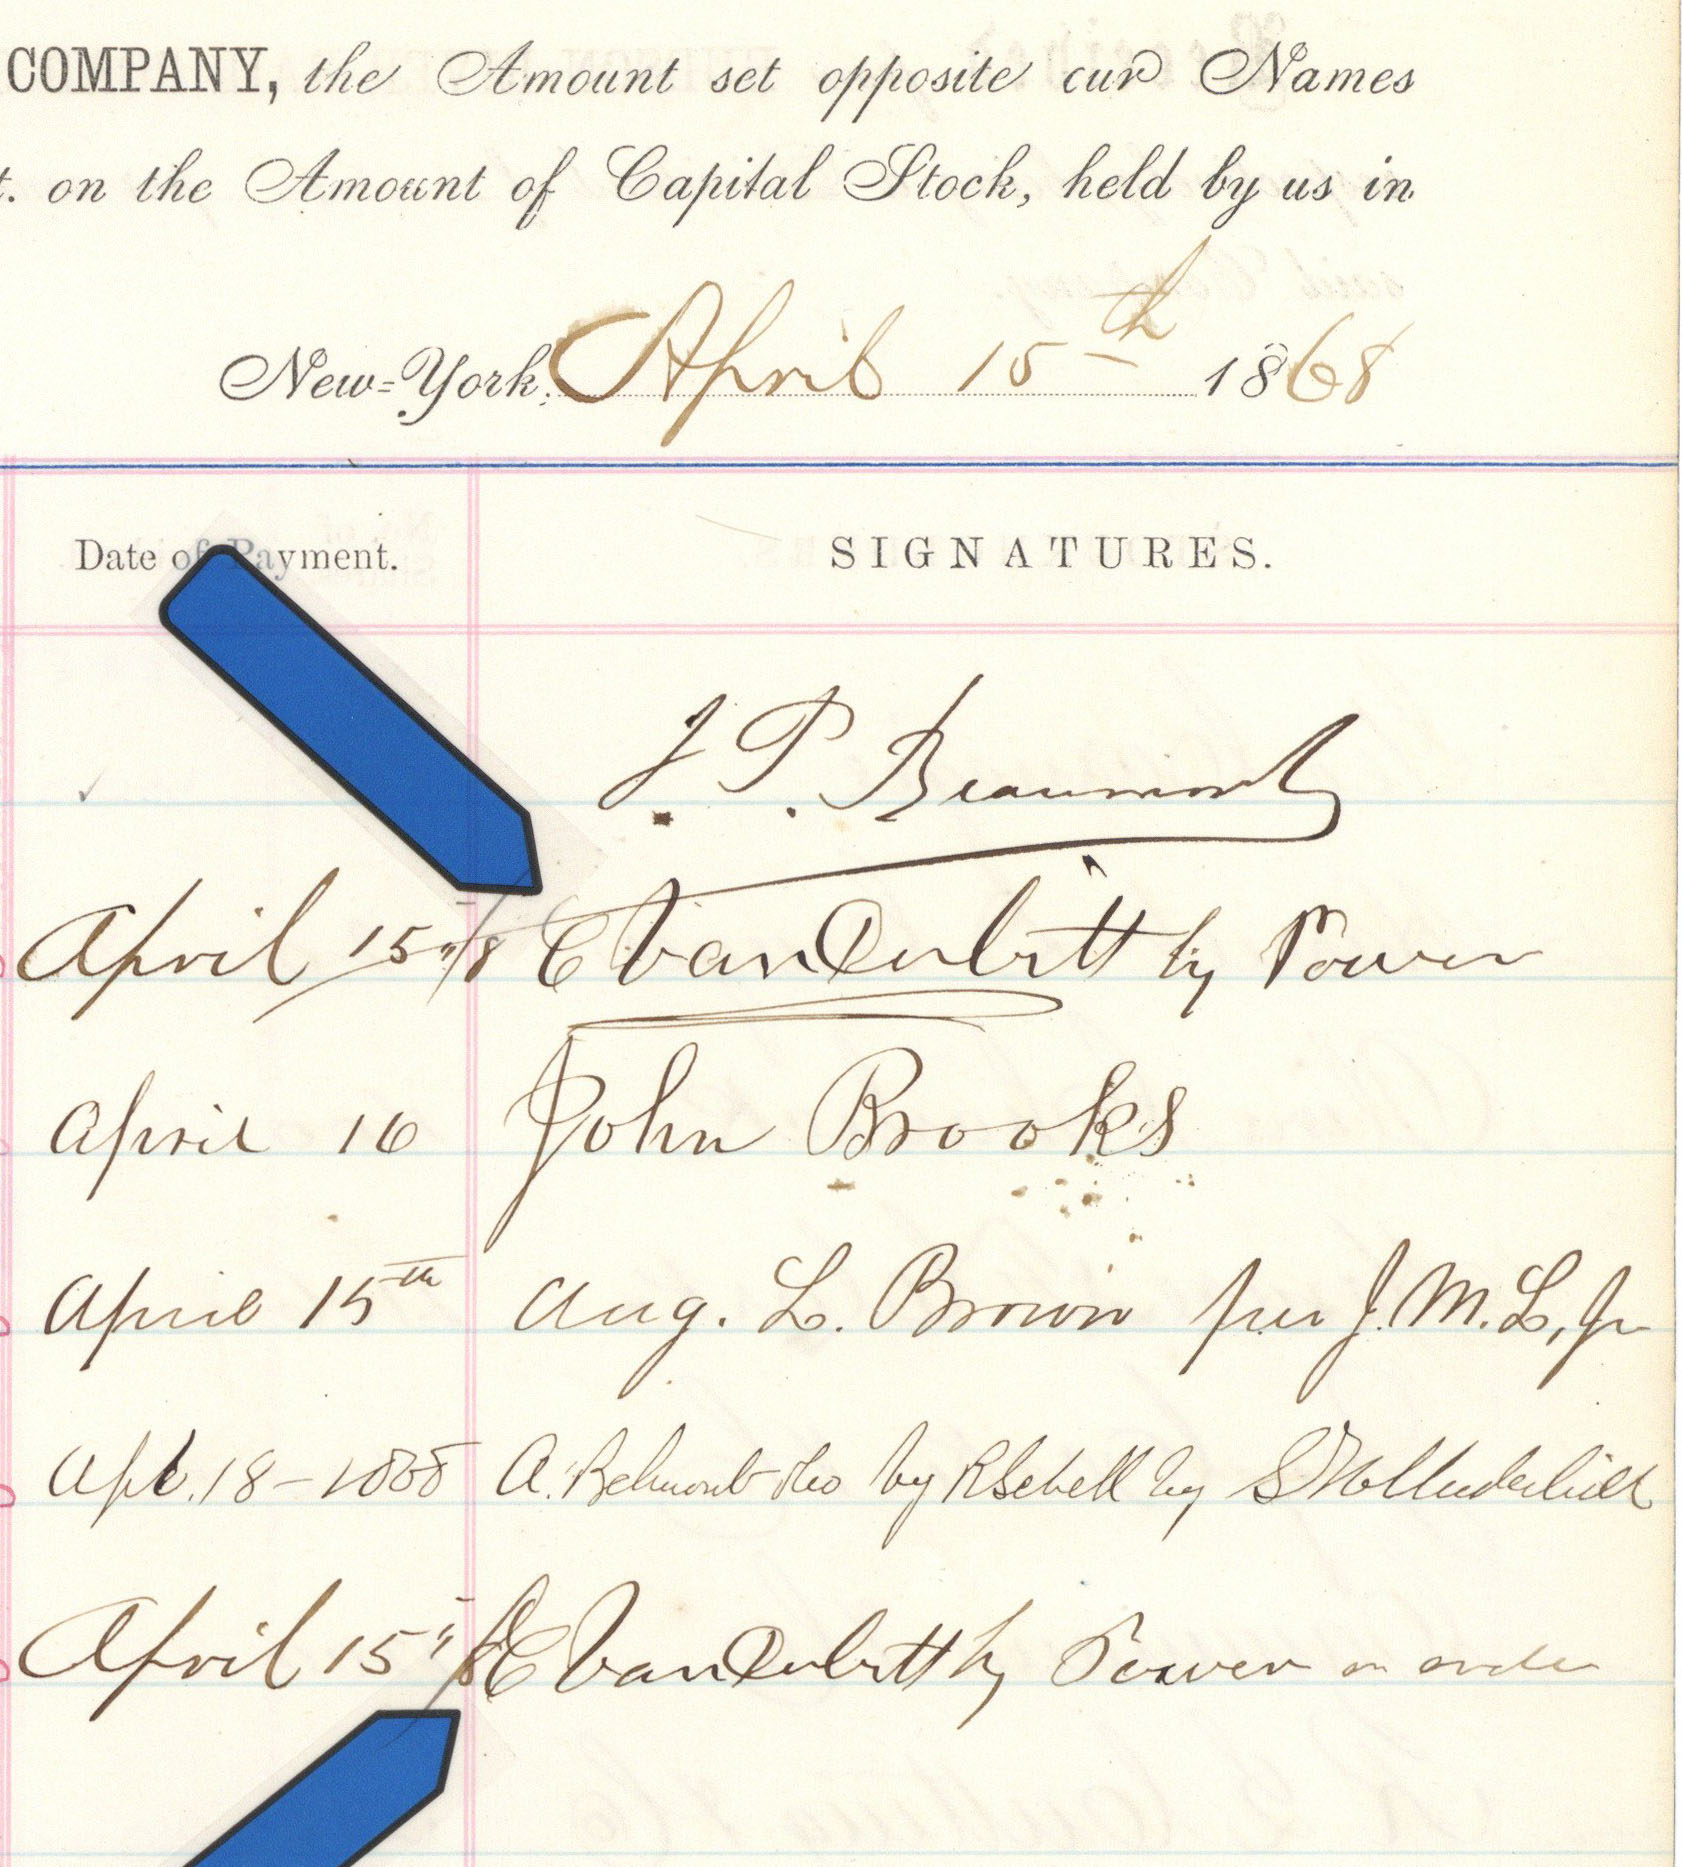 COMPANY, the Amount set opposite our Names
t. on the Amount of Capital Stock, held by us in
New-York, April 15th 1868
Date of Payment. SIGNATURES.
J. P. Beaumont
April 15"/68 E Vanderbilt by Power
April 16 John Brooks
April 15th Aug. L. Brown per J. M. L, Jr
Apl. 18-1868 A. Belmont & Co by R Schell by Underhill
April 15"/68 E Vanderbilt by Power or order